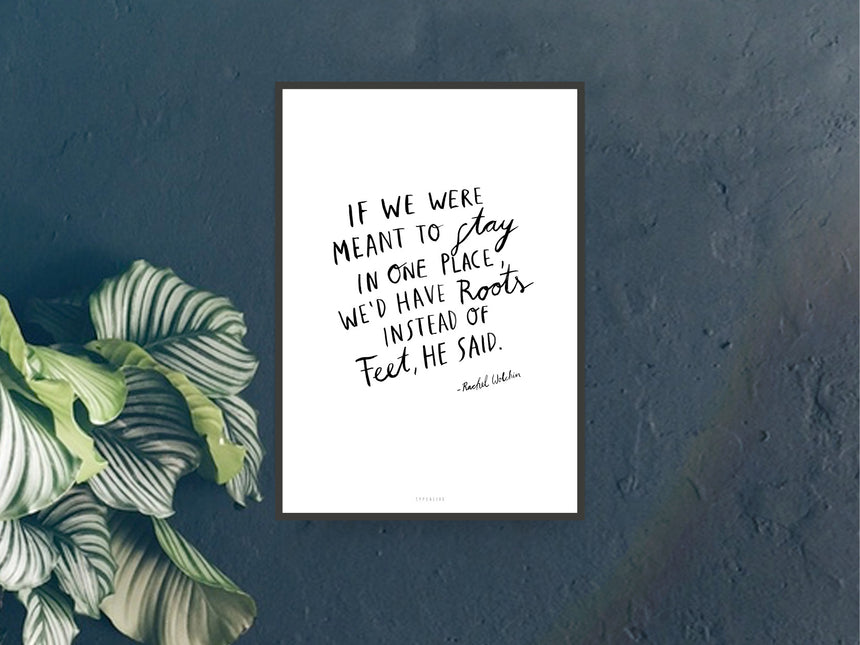 IF WE WERE
MEANT TO stay
IN ONE PLACE,
WE'D HAVE Roots
INSTEAD OF
Feet, HE SAID.
-Rachel Wolchin